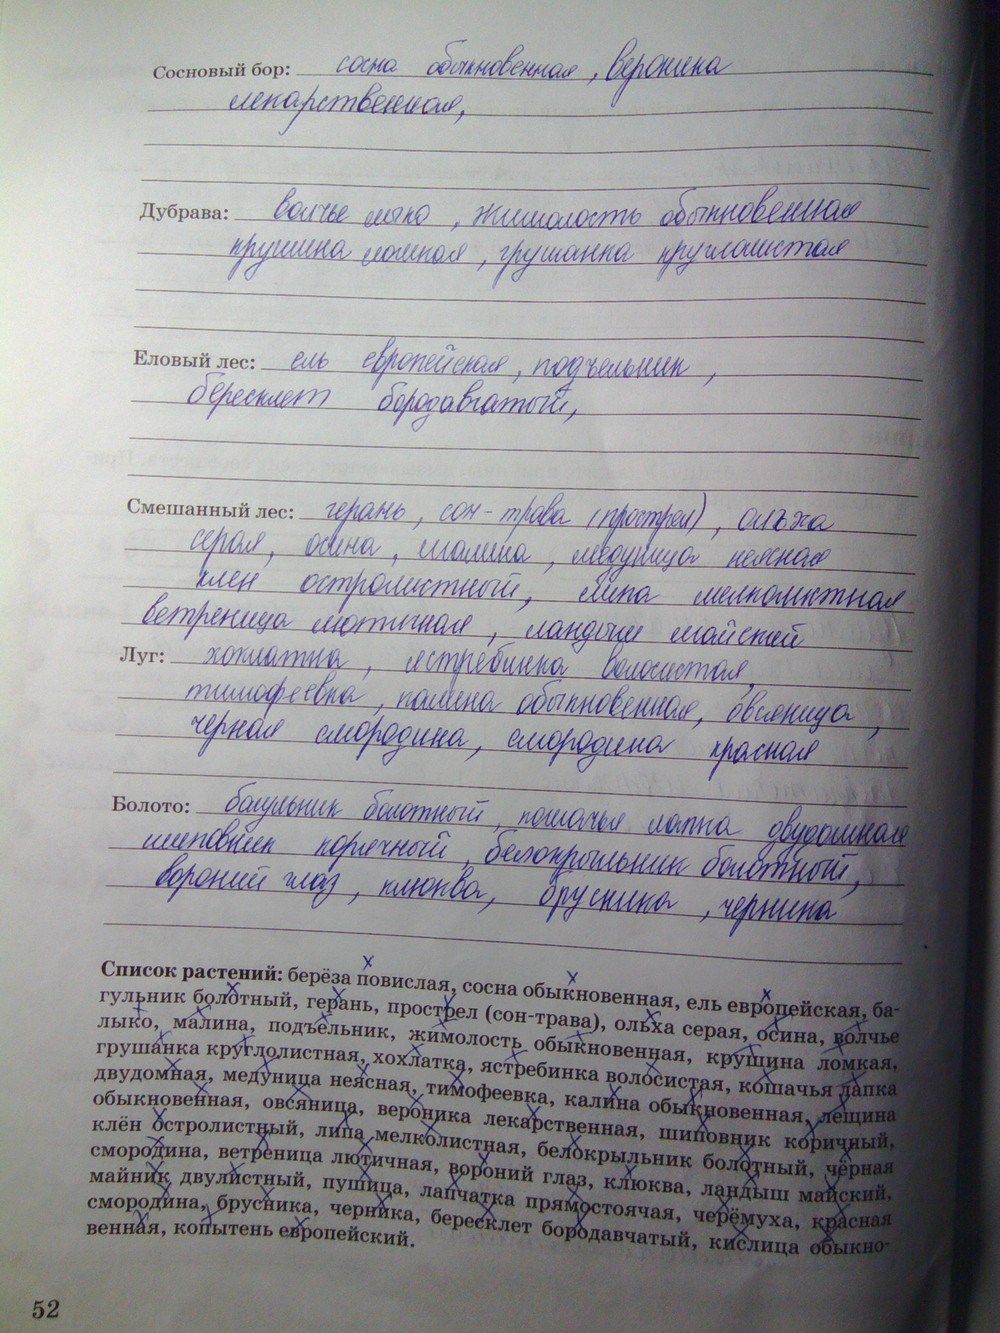 Сосновый бор: сосна обыкновенная, вероника
лекарственная,
Дубрава: волчье лыко, жимолость обыкновенная
крушина ломкая, грушанка круглолистая
Еловый лес: ель европейская, подъельник,
бересклет бородавчатый,
Смешанный лес: герань, сон-трава (прострел), ольха
серая, осина, малина, медуница неясная
клен остролистный, липа мелколистная
ветреница лютичная, ландыш майский
Луг: хохлатка, ястребинка волосистая,
тимофеевка, калина обыкновенная, овсяница,
черная смородина, смородина красная
Болото: багульник болотный, кошачья лапка двудомная
шиповник коричный, белокрыльник болотный,
вороний глаз, клюква, брусника, черника
Список растений: берёза повислая, сосна обыкновенная, ель европейская, ба-
гульник болотный, герань, прострел (сон-трава), ольха серая, осина, волчье
лыко, малина, подъельник, жимолость обыкновенная, крушина ломкая,
грушанка круглолистная, хохлатка, ястребинка волосистая, кошачья лапка
двудомная, медуница неясная, тимофеевка, калина обыкновенная, лещина
обыкновенная, овсяница, вероника лекарственная, шиповник коричный,
клён остролистный, липа мелколистная, белокрыльник болотный, чёрная
смородина, ветреница лютичная, вороний глаз, клюква, ландыш майский,
майник двулистный, пушица, лапчатка прямостоячая, черёмуха, красная
смородина, брусника, черника, бересклет бородавчатый, кислица обыкно-
венная, копытень европейский.
52